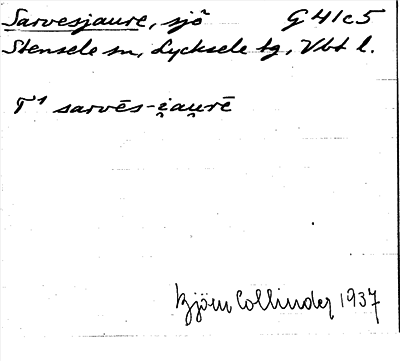 Sarvesjaure, sjö G 41c5
Stensele sn, Lycksele tg, Vbt l.
T¹ sarvēs-i̯au̯rē
Björn Collinder 1937